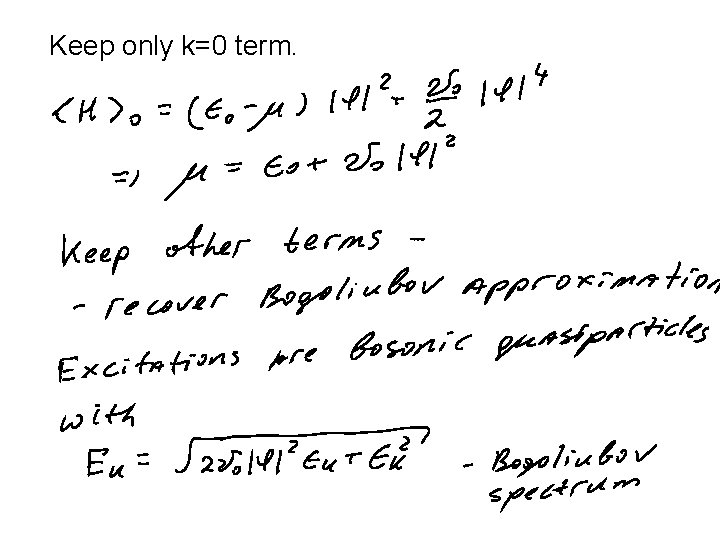 Keep only k=0 term.
<H>₀ = (ϵ₀-μ) |φ|² + v₀/2 |φ|⁴
=> μ = ϵ₀ + v₀|φ|²
Keep other terms -
- recover Bogoliubov Approximation
Excitations are bosonic quasiparticles
with
Eₖ = √(2v₀|φ|² ϵₖ + ϵₖ²) - Bogoliubov
spectrum